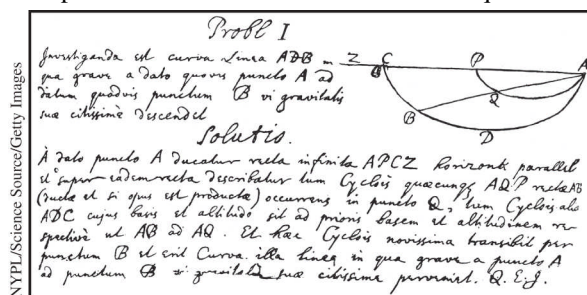 Probl I
Investiganda est curva Linea ADB in
qua grave a dato quovis puncto A ad
datum quodvis punctum B vi gravitatis
suæ citissimè descendet
Z C P A
B Q
D
Solutio.
A dato puncto A ducatur recta infinita APCZ horizonti parallel
et super eadem recta describatur tum Cyclois quæcunq AQP rectæ AB
(ductæ et si opus est productæ) occurrens in puncto Q, tum Cyclois alia
ADC cujus basis et altitudo sit ad prioris basem et altitudinem re-
spective ut AB ad AQ. Et hæc Cyclois novissima transibit per
punctum B et erit Curva illa linea in qua grave a puncto A
ad punctum B vi gravitatis suæ citissime perveniet. Q.E.I.
NYPL/Science Source/Getty Images